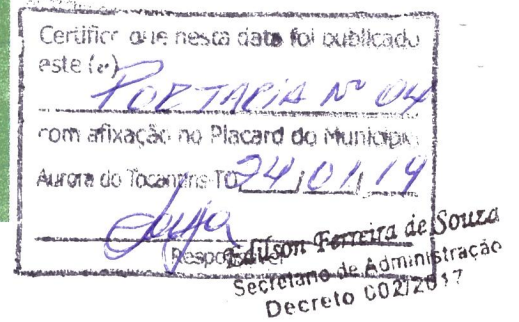 Certifico que nesta data foi publicado
este (a)
PORTARIA Nº 04
com afixação no Placard do Município
Aurora do Tocantins-TO 24/01/19
Responsável
Edilson Ferreira de Souza
Secretário de Administração
Decreto 002/2017